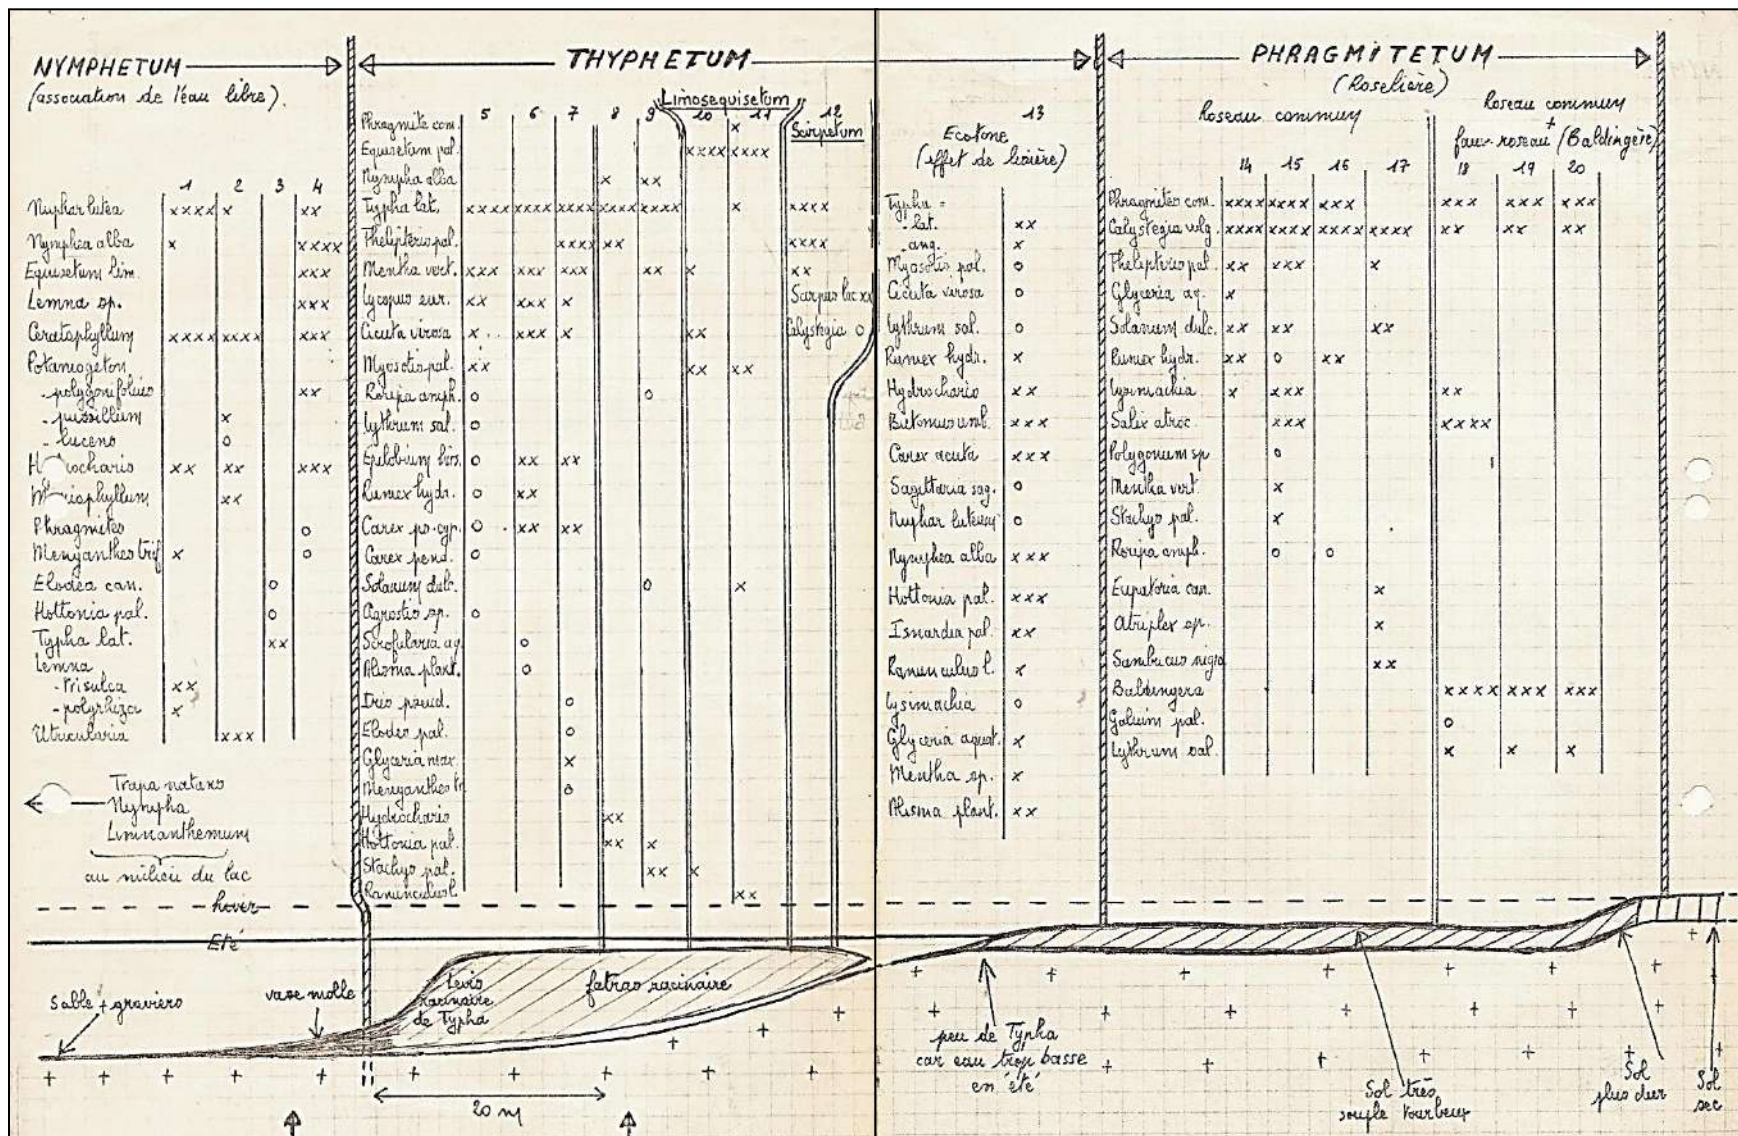 NYMPHETUM
(association de l'eau libre).
1 2 3 4
Nuphar lutea xxxx x xx
Nymphea alba x xxxx
Equisetum lim. xxx
Lemna sp. xxx
Ceratophyllum xxxx xxxx xxx
Potamogeton
- polygonifolius xx
- pussillum x
- lucens o
H ocharis xx xx xxx
M iophyllum xx
Phragmites o
Menyanthes trif x o
Elodea can. o
Hottonia pal. o
Typha lat. xx
Lemna
- trisulca xx
- polyrhiza x
Utricularia xxx
Trapa natans
Nympha
Limnanthemum
au milieu du lac
THYPHETUM
Limosequisetum
5 6 7 8 9 10 11 12
Scirpetum
Phragmite com. x
Equisetum pal. xxxx xxxx
Nympha alba x xx
Typha lat. xxxx xxxx xxxx xxxx xxxx x xxxx
Thelipteris pal. xxxx xx xxxx
Mentha vert. xxx xxx xxx xx x xx
Lycopus eur. xx xxx x
Scirpus lac xx
Cicuta virosa x xxx x xx
Calystegia o
Myosotis pal. xx xx xx
Roripa amph. o o
Lythrum sal. o
Epilobium hirs. o xx xx
Rumex hydr. o xx
Carex ps.cyp. o xx xx
Carex pend. o
Solanum dulc. o x
Agrostis sp. o
Scrofularia aq. o
Alisma plant. o
Iris pseud. o
Elodea pal. o
Glyceria max. x
Menyanthes tr. o
Hydrocharis xx
Hottonia pal. xx x
Stachys pal. xx x
Ranunculus l. xx
13
Ecotone
(effet de lisière)
Typha =
- lat. xx
- ang. x
Myosotis pal. o
Cicuta virosa o
Lythrum sal. o
Rumex hydr. x
Hydrocharis xx
Butomus umb. xxx
Carex acuta xxx
Sagittaria sag. o
Nuphar luteum o
Nymphea alba xxx
Hottonia pal. xxx
Isnardia pal. xx
Ranunculus l. x
Lysimachia o
Glyceria aquat. x
Mentha sp. x
Alisma plant. xx
PHRAGMITETUM
(Roselière)
Roseau commun
Roseau commun
+
faux-roseau (Baldingère)
14 15 16 17 18 19 20
Phragmites com. xxxx xxxx xxx xxx xxx xxx
Calystegia vulg. xxxx xxxx xxxx xxxx xx xx xx
Thelipteris pal. xx xxx x
Glyceria aq. x
Solanum dulc. xx xx xx
Rumex hydr. xx o xx
Lysimachia x xxx xx
Salix atroc. xxx xxxx
Polygonum sp o
Mentha vert. x
Stachys pal. x
Roripa amph. o o
Eupatoria can. x
Atriplex sp. x
Sambucus nigra xx
Baldingera xxxx xxx xxx
Galium pal. o
Lythrum sal. x x x
hiver
Eté
Sable + graviers
vase molle
Levis
racinaire
de Typha
fatras racinaire
20 m
peu de Typha
car eau trop basse
en été
Sol très
souple tourbeux
Sol
plus dur
Sol
sec